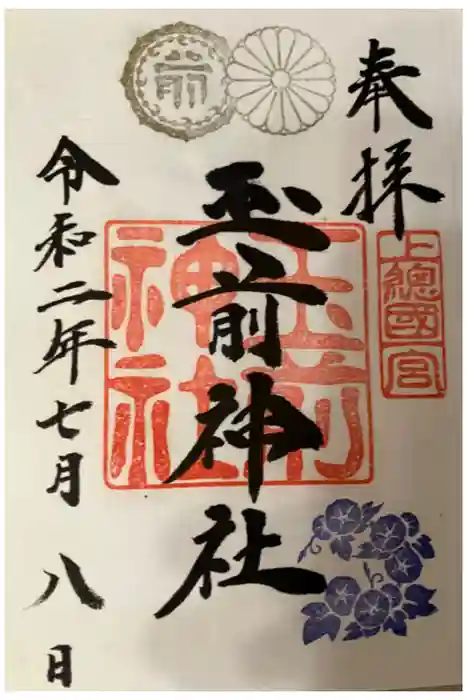 奉拝
上總國一宮
玉前神社
玉前神社
令和二年七月八日